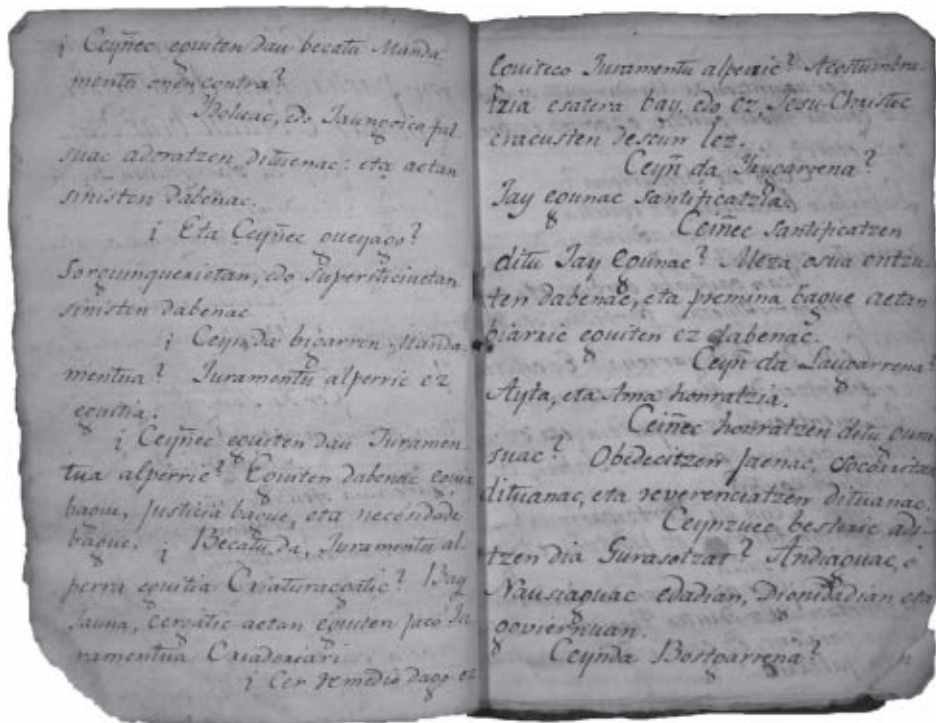 ¡ Ceyñec eguiten dau becatu Manda-
mentu onen contra?
Ydoluac, edo Jaungoico fal-
suac adoratzen dituenac: eta aetan
sinisten dabenac.
¡ Eta Ceyñec gueyago?
Sorguinquerietan, edo Supersticiuetan
sinisten dabenac
¡ Ceyn da bigarren Manda-
mentua? Juramentu alperric ez
eguitia.
¡ Ceyñec eguiten dau Juramen-
tua alperric? Eguiten dabenac eguia
bague, justicia bague, eta necesidade
bague. ¡ Becatu da, Juramentu al-
perra eguitia Criaturacgatic? Bay
Jauna, cergatic aetan eguiten jaco Ju-
ramentua Criadoriari.
¡ Cer remedio dago ez
eguiteco Juramentu alperric? Acostumbra-
tzia esatera bay, edo ez, Jesu-Christec
eracusten descun lez.
Ceyñ da Yrugarrena?
Jay egunac santificatzia.
Ceiñec santificatzen
ditu Jay egunac? Meza osua entzu-
ten dabenac, eta premina bague aetan
biarric eguiten ez dabenac.
Ceyñ da Laugarrena?
Ayta, eta Ama honratzia.
Ceiñec honratzen ditu gura-
suac? Obedecitzen jaenac, socorritzen
dituanac, eta reverenciatzen dituanac.
Ceynzuec besteric adi-
tzen dia Gurasotzat? Andiaguac, ó
Nausiaguac edadian, Dignidadian eta
goviernuan.
Ceynda Bostgarrena?